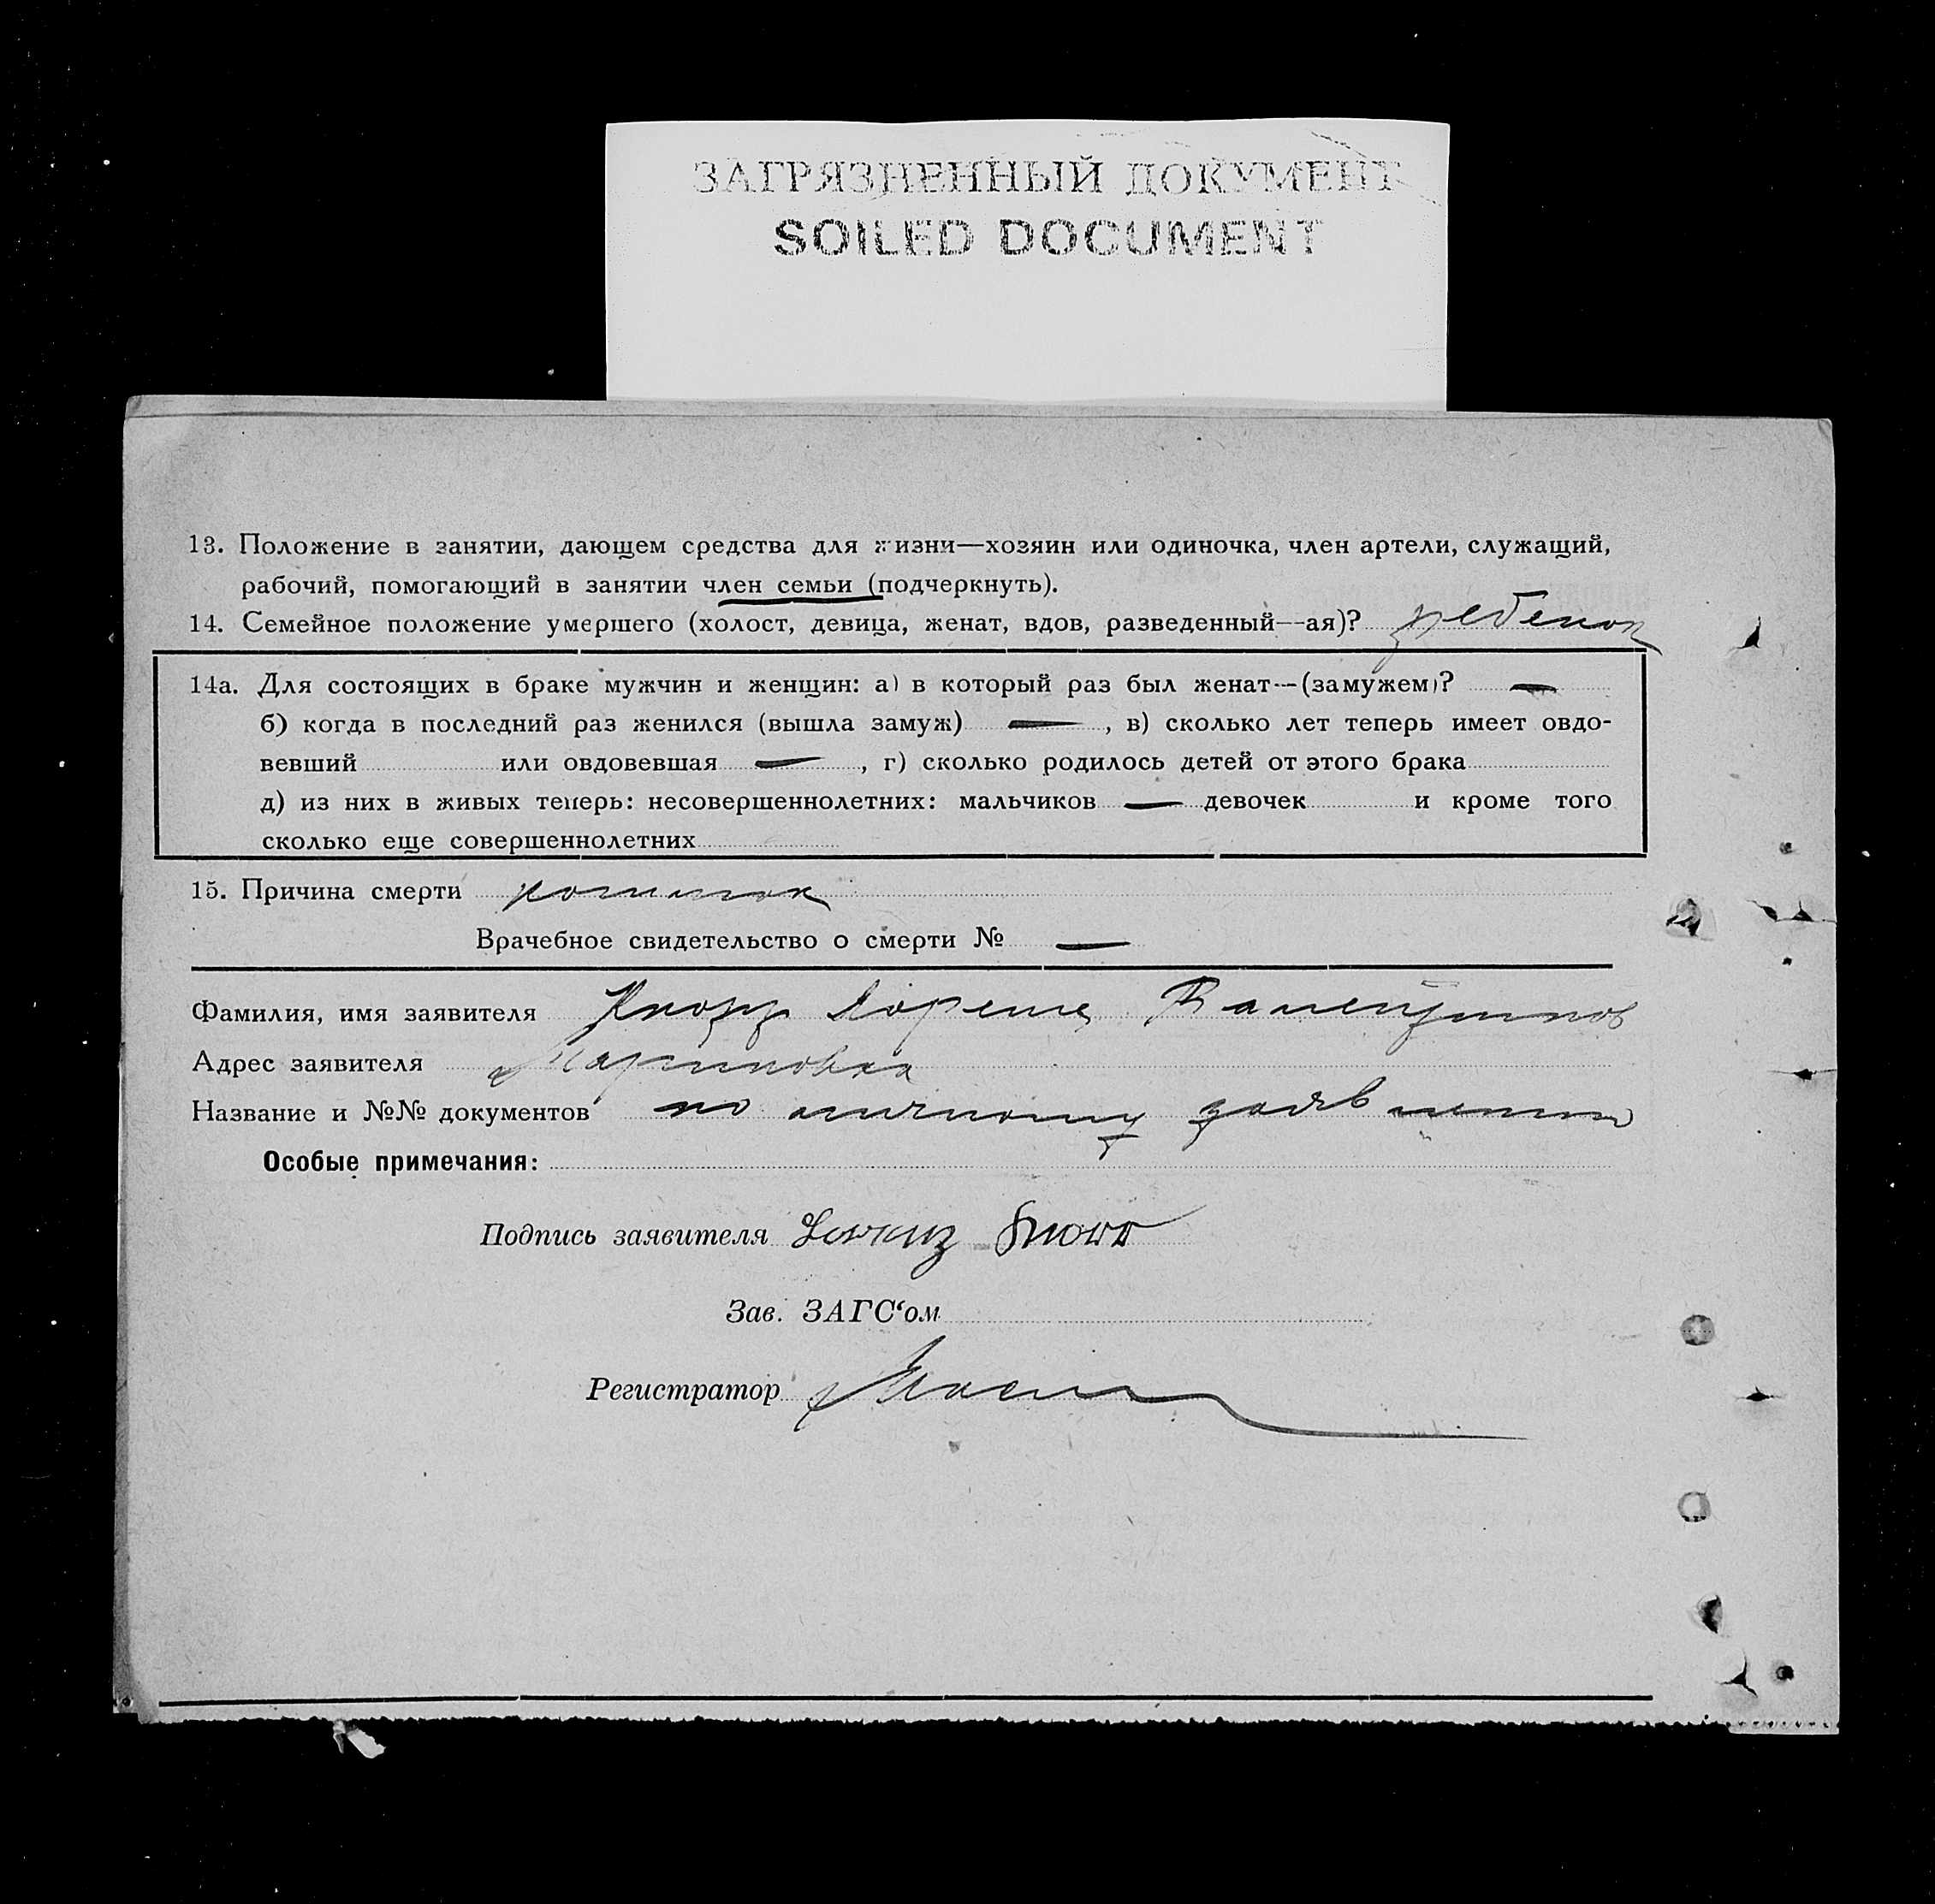 ЗАГРЯЗНЕННЫЙ ДОКУМЕНТ
SOILED DOCUMENT
13. Положение в занятии, дающем средства для жизни—хозяин или одиночка, член артели, служащий,
рабочий, помогающий в занятии член семьи (подчеркнуть).
14. Семейное положение умершего (холост, девица, женат, вдов, разведенный—ая)? ребенок
14а. Для состоящих в браке мужчин и женщин: а) в который раз был женат—(замужем)? —
б) когда в последний раз женился (вышла замуж) —, в) сколько лет теперь имеет овдо-
вевший или овдовевшая —, г) сколько родилось детей от этого брака
д) из них в живых теперь: несовершеннолетних: мальчиков — девочек и кроме того
сколько еще совершеннолетних
15. Причина смерти
Врачебное свидетельство о смерти № —
Фамилия, имя заявителя Кнорр Лоренц
Адрес заявителя
Название и №№ документов по личному заявлению
Особые примечания:
Подпись заявителя Lorenz Knorr
Зав. ЗАГС‘ом
Регистратор